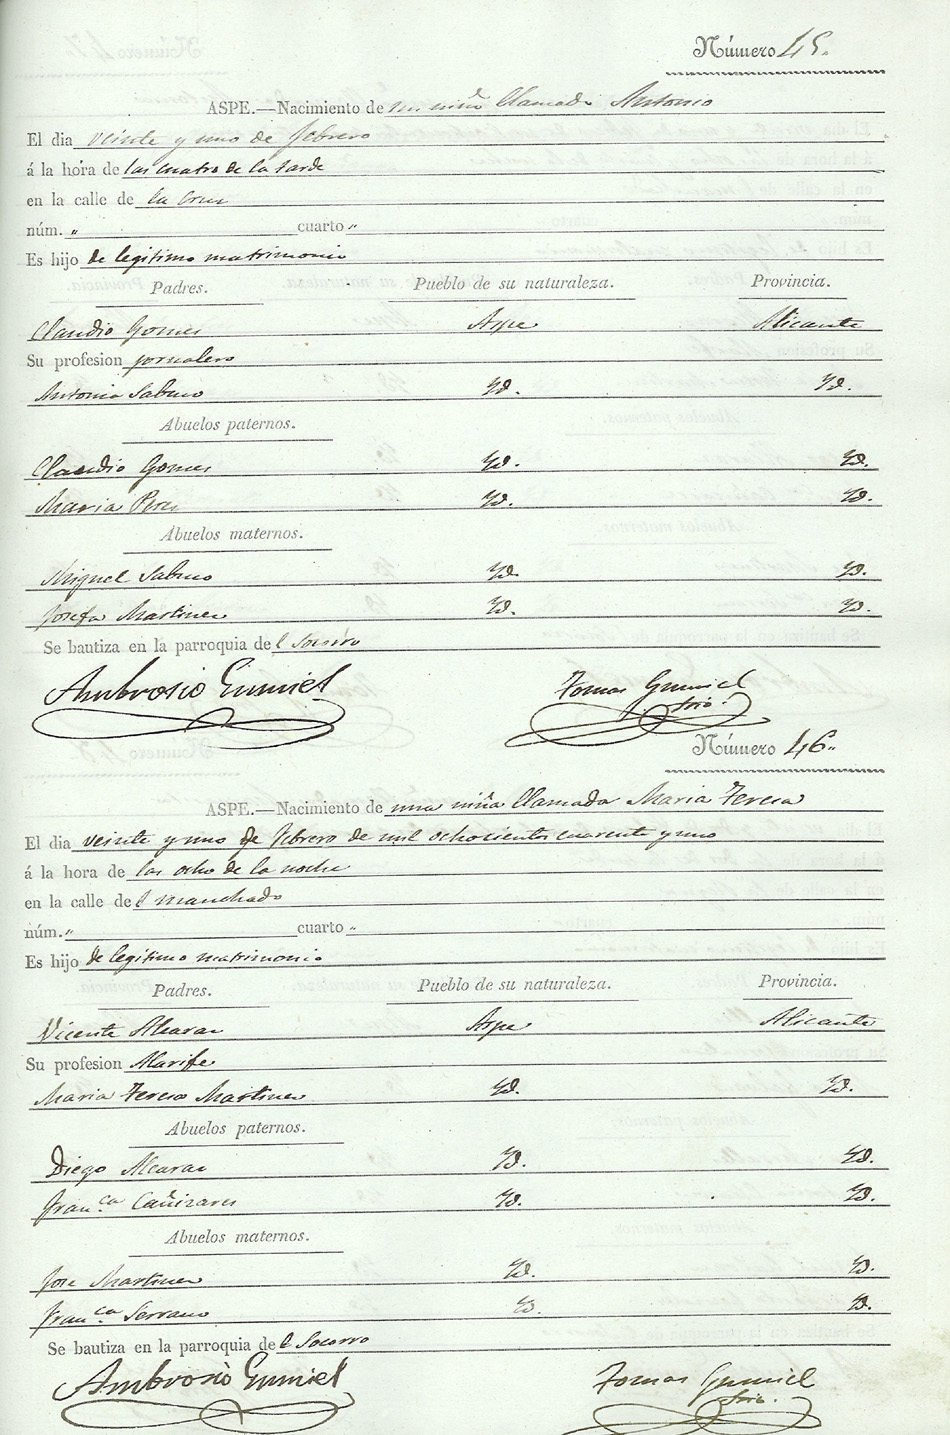 Número 45.
ASPE.—Nacimiento de un niño llamado Antonio
El dia veinte y uno de febrero
á la hora de las cuatro de la tarde
en la calle de la Cruz
núm. " cuarto "
Es hijo de legitimo matrimonio
Padres. Pueblo de su naturaleza. Provincia.
Claudio Gomez Aspe Alicante
Su profesion jornalero
Antonia Sabuco Yd. Yd.
Abuelos paternos.
Claudio Gomez Yd. Yd.
Maria Perez Yd. Yd.
Abuelos maternos.
Miguel Sabuco Yd. Yd.
Josefa Martinez Yd. Yd.
Se bautiza en la parroquia del Socorro
Ambrosio Gumiel Tomas Gumiel
Srio.
Número 46.
ASPE.—Nacimiento de una niña llamada Maria Teresa
El dia veinte y uno de febrero de mil ochocientos cuarenta y uno
á la hora de las ocho de la noche
en la calle del manchado
núm. " cuarto "
Es hijo de legitimo matrimonio
Padres. Pueblo de su naturaleza. Provincia.
Vicente Alcaraz Aspe Alicante
Su profesion Alarife
Maria Teresa Martinez Yd. Yd.
Abuelos paternos.
Diego Alcaraz Yd. Yd.
Fran.ca Cañizares Yd. Yd.
Abuelos maternos.
Jose Martinez Yd. Yd.
Fran.ca Serrano Yd. Yd.
Se bautiza en la parroquia del Socorro
Ambrosio Gumiel Tomas Gumiel
Srio.